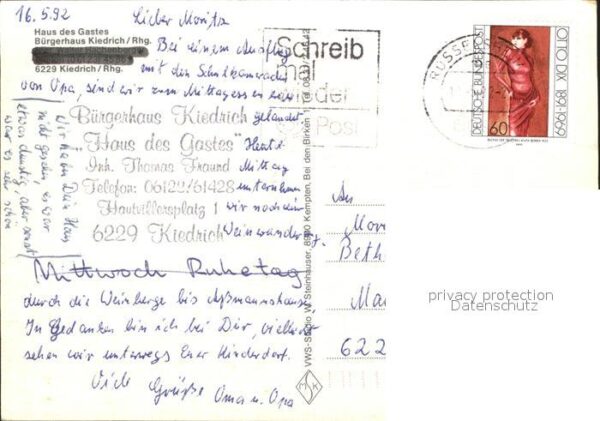 16.5.92
Lieber Moritz
Haus des Gastes
Bürgerhaus Kiedrich / Rhg.
6229 Kiedrich / Rhg.
Bei einem Ausflug
mit den Schulkameraden
von Opa, sind wir zum Mittagessen hier
gelandet
Bürgerhaus Kiedrich
"Haus des Gastes"
Heute
Inh. Thomas Fraund
Mittag
Telefon: 06122/61428
unternehmen
Hautvillersplatz 1
wir noch eine
6229 Kiedrich
Weinwanderung
Mittwoch Ruhetag
durch die Weinberge bis Aßmannshausen
In Gedanken bin ich bei Dir, vielleicht
sehen wir unterwegs Euer Kinderdorf.
Viele Grüße Oma u. Opa
Wir haben Dein Haus
nicht gesehen, es war
etwas dunstig, aber sonst
war es sehr schön
Schreib
mal
wieder
Post
RÜSSELSHEIM
DEUTSCHE BUNDESPOST
OTTO DIX 1891-1969
60
VWS-Studio W. Steinhauser, 8960 Kempten, Bei den Birken
An
Mor
Beth
Ma
622
privacy protection
Datenschutz